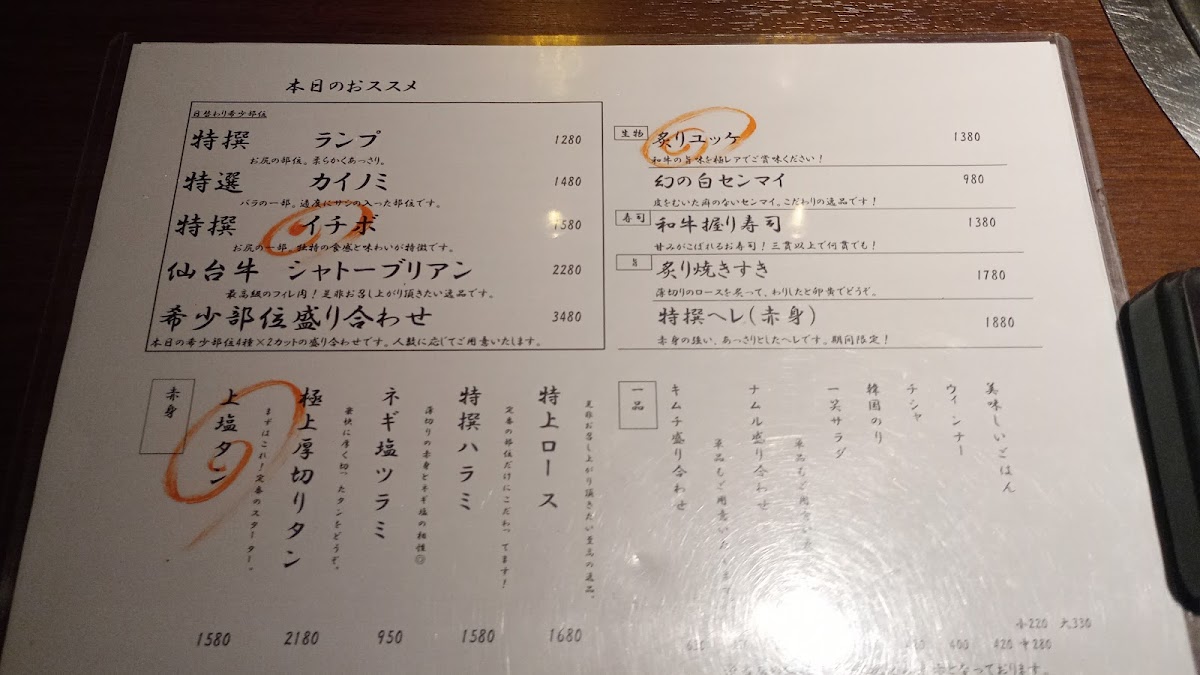 本日のおススメ
日替わり希少部位
特撰 ランプ 1280
お尻の部位。柔らかくあっさり。
特選 カイノミ 1480
バラの一部。適度にサシの入った部位です。
特撰 イチボ 1580
お尻の一部。独特の食感と味わいが特徴です。
仙台牛 シャトーブリアン 2280
最高級のフィレ肉!是非お召し上がり頂きたい逸品です。
希少部位盛り合わせ 3480
本日の希少部位4種×2カットの盛り合わせです。人数に応じてご用意いたします。
生物
炙りユッケ 1380
和牛の旨味を極レアでご賞味ください!
幻の白センマイ 980
皮をむいた癖のないセンマイ。こだわりの逸品です!
寿司
和牛握り寿司 1380
甘みがこぼれるお寿司!三貫以上で何貫でも!
旨
炙り焼きすき 1780
薄切りのロースを炙って、わりしたと卵黄でどうぞ。
特撰ヘレ(赤身) 1880
赤身の強い、あっさりとしたヘレです。期間限定!
赤身
上塩タン 1580
まずはこれ!定番のスターター。
極上厚切りタン 2180
豪快に厚く切ったタンをどうぞ。
ネギ塩ツラミ 950
薄切りの赤身とネギ塩の相性
特撰ハラミ 1580
定番の部位だけにこだわってます!
特上ロース 1680
是非お召し上がり頂きたい至高の逸品。
一品
キムチ盛り合わせ
単品もご用意いた
ナムル盛り合わせ
単品もご用意いた
一笑サラダ
韓国のり
チシャ
ウィンナー
400
美味しいごはん
小220 大330
420 中280
となっております。